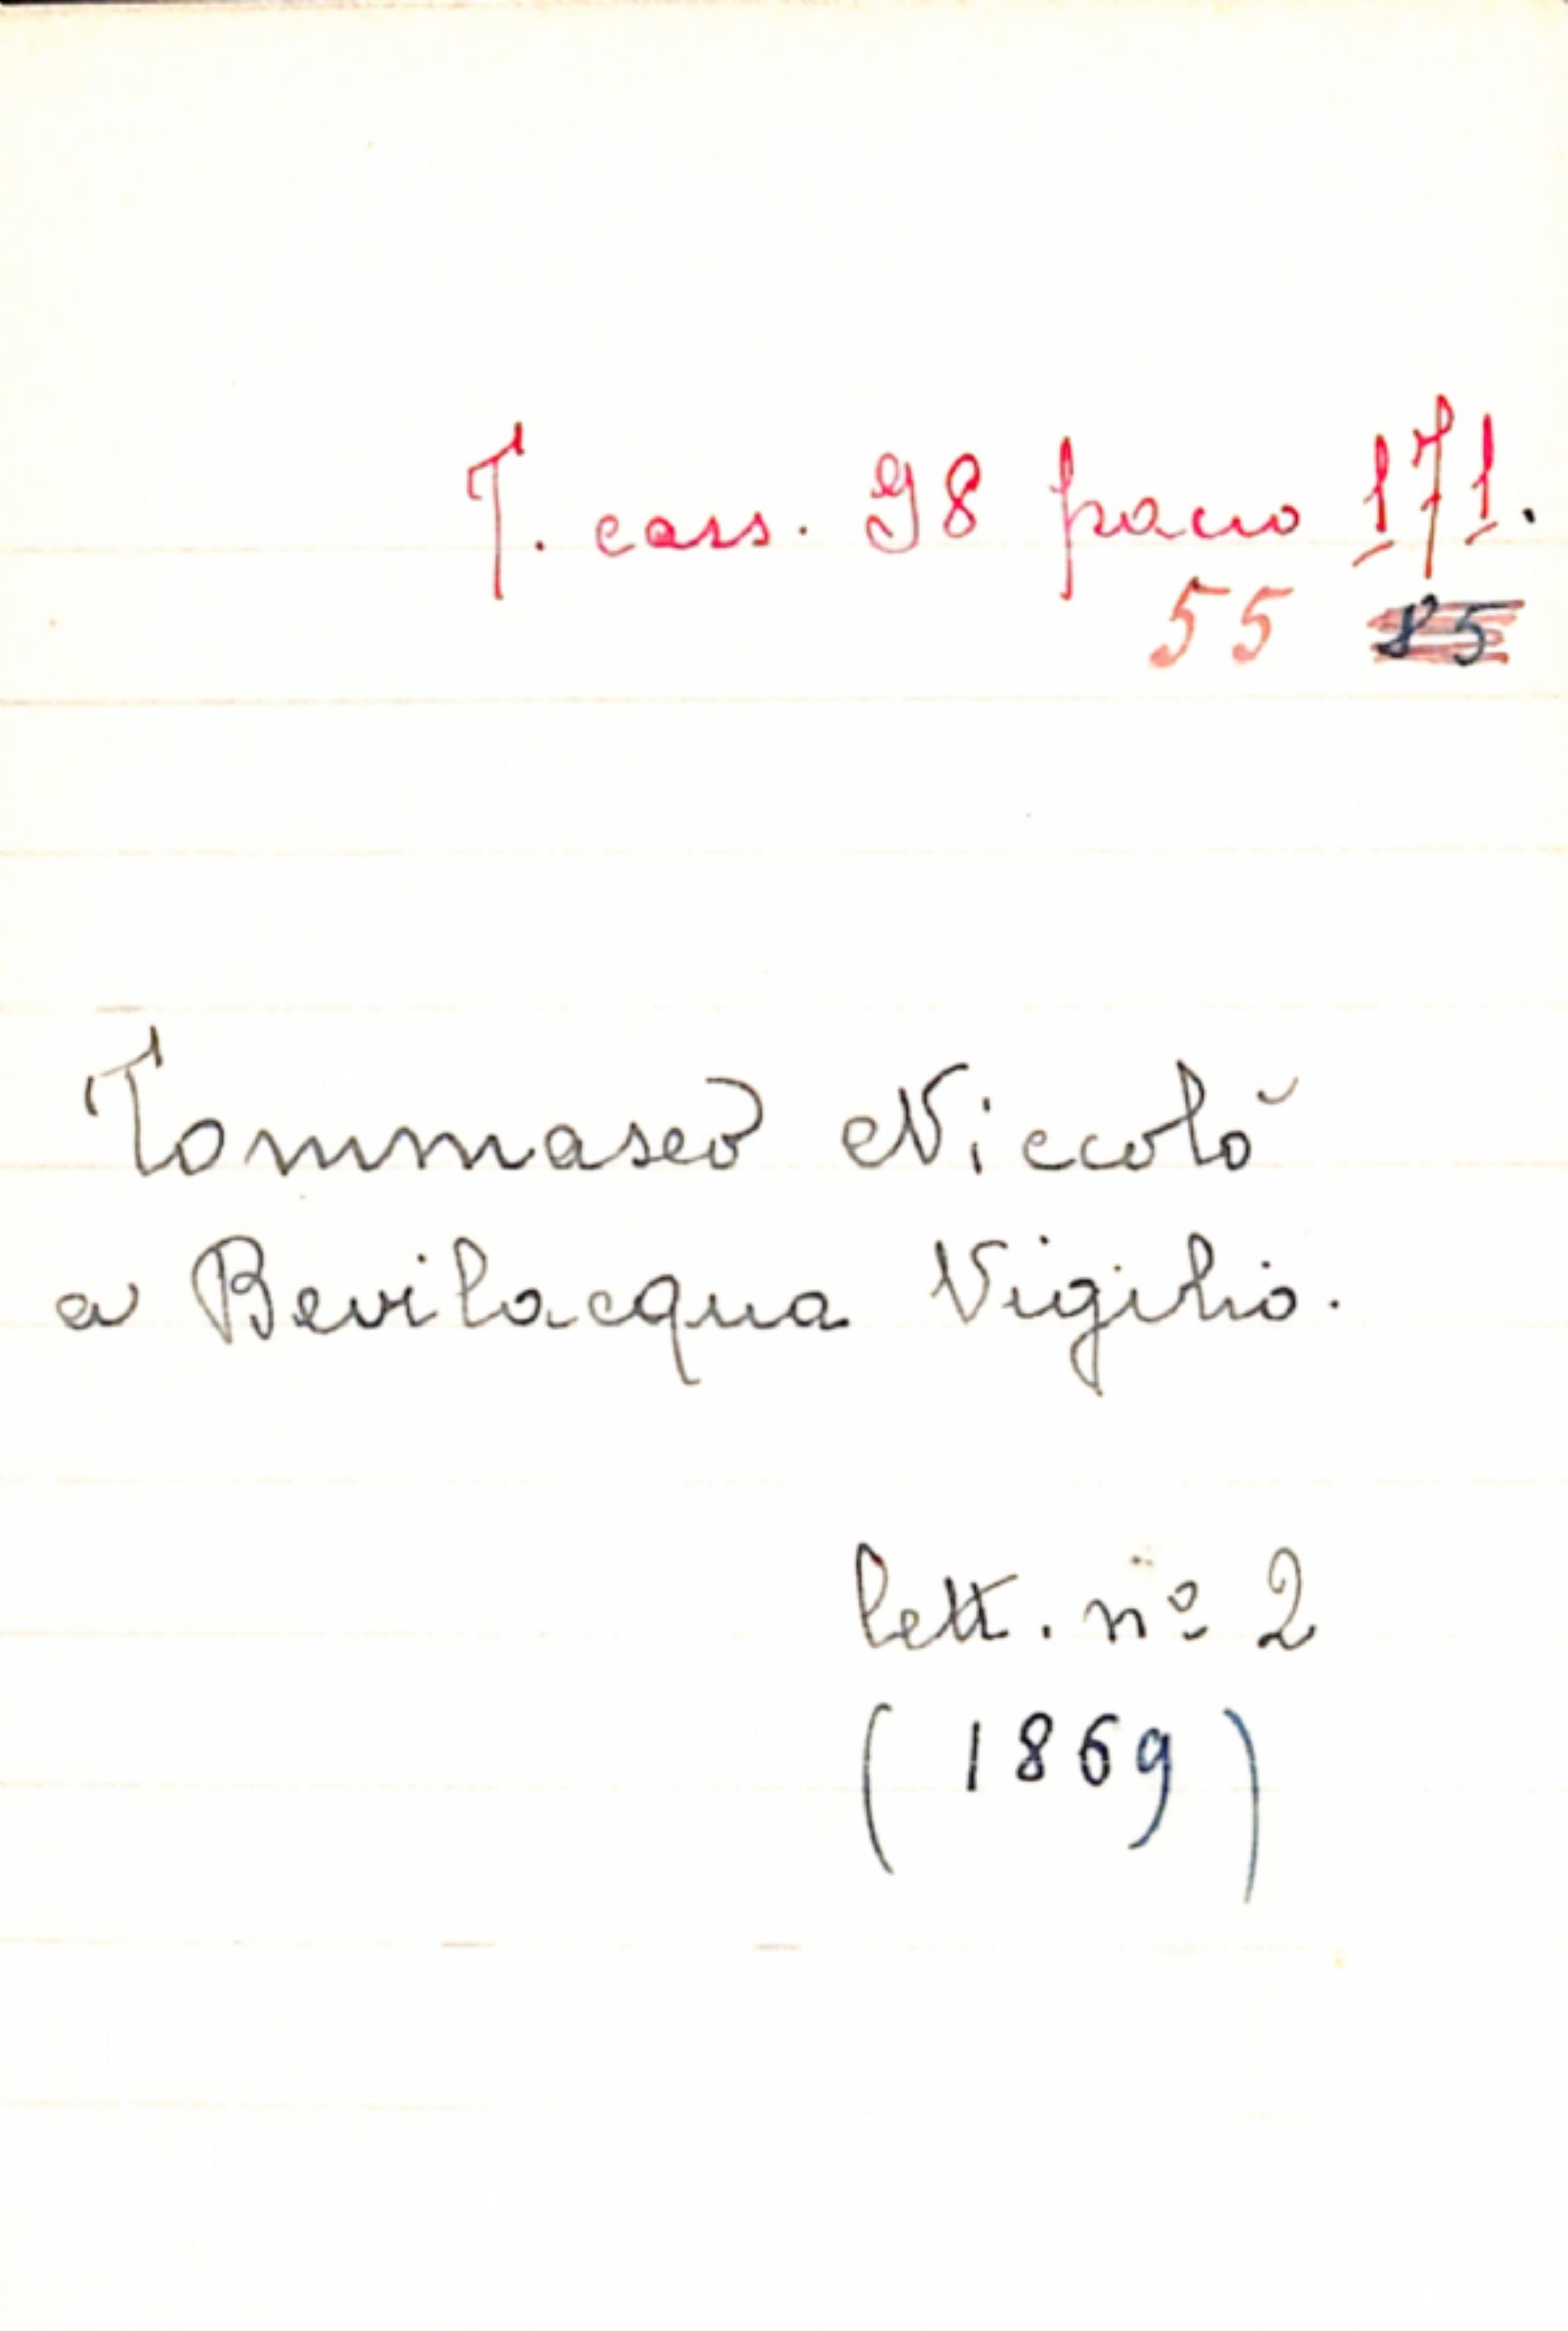 T. cass. 98 pacco 171.
55 85
Tommaseo Niccolò
a Bevilacqua Vigilio.
lett. nº 2
(1869)